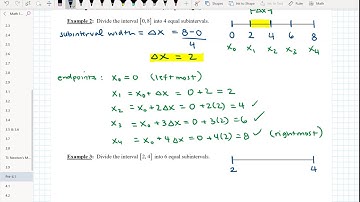 Example 2: Divide the interval [0,8] into 4 equal subintervals.
subinterval width = Δx = 8-0
4
Δx = 2
0 2 4 6 8
x₀ x₁ x₂ x₃ x₄
endpoints: x₀ = 0 (leftmost)
x₁ = x₀ + Δx = 0 + 2 = 2
x₂ = x₀ + 2Δx = 0 + 2(2) = 4 ✓
x₃ = x₀ + 3Δx = 0 + 3(2) = 6 ✓
x₄ = x₀ + 4Δx = 0 + 4(2) = 8 ✓ (rightmost)
Example 3: Divide the interval [2,4] into 6 equal subintervals.
2 4